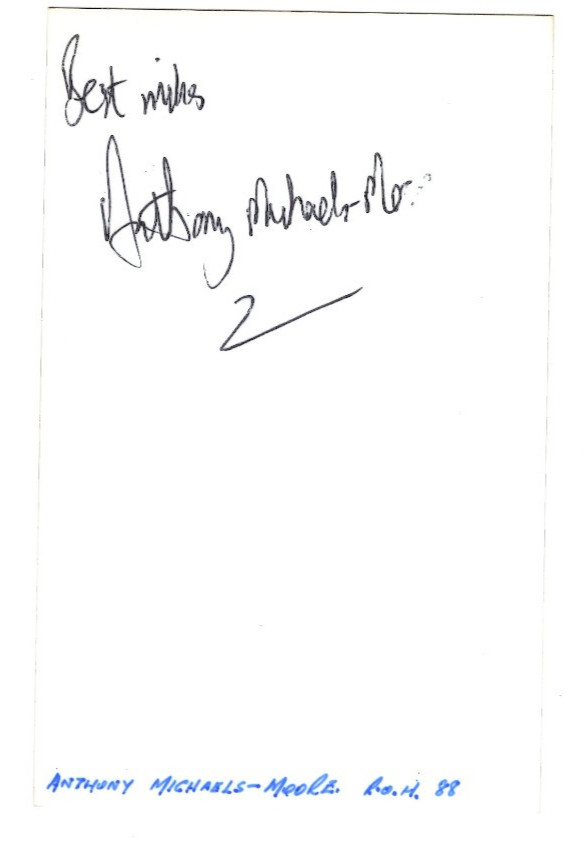 Best wishes
Anthony Michaels-Moore
ANTHONY MICHAELS-MOORE. R.O.H. 88